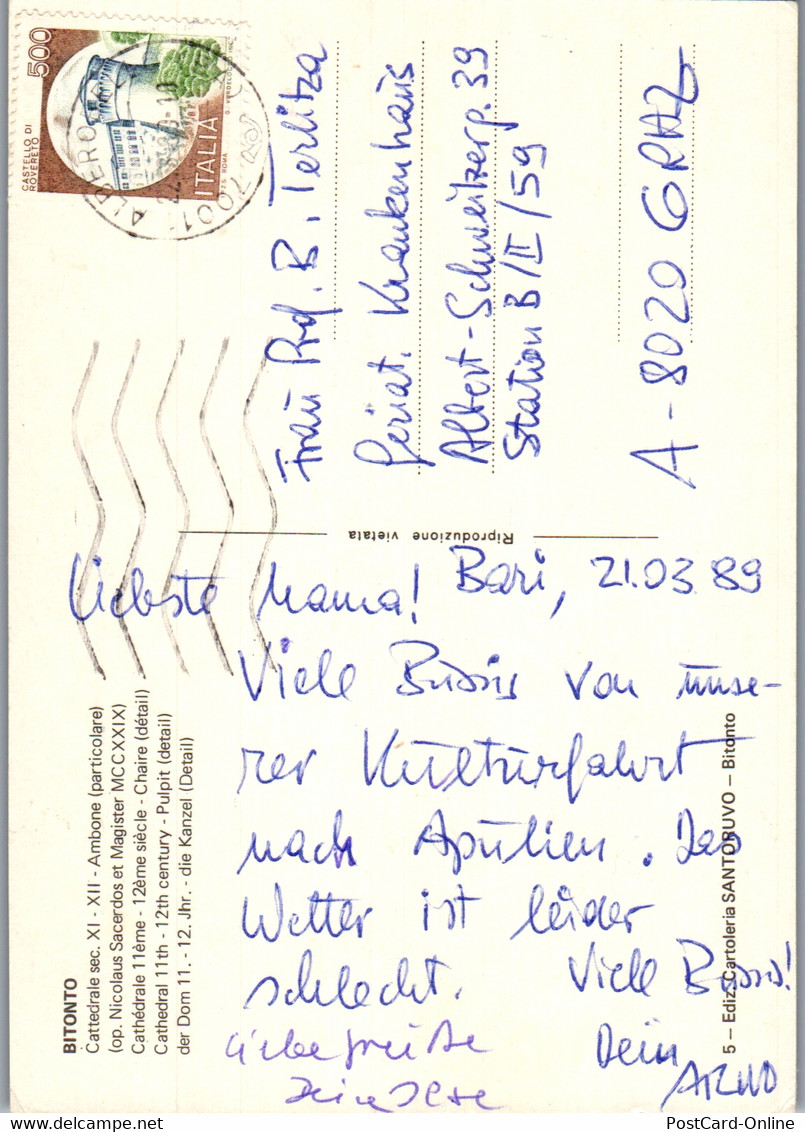 BITONTO
Cattedrale sec. XI - XII - Ambone (particolare)
(op. Nicolaus Sacerdos et Magister MCCXXIX)
Cathédrale 11ème - 12ème siècle - Chaire (détail)
Cathedral 11th - 12th century - Pulpit (detail)
der Dom 11. - 12. Jhr. - die Kanzel (Detail)
Liebste Mama! Bari, 21.03 89
Viele Bussis von unse-
rer Kulturfahrt
nach Apulien. Das
Wetter ist leider
schlecht. Viele Bussi!
Dein
ARNO
Liebe Grüße
Deine
5 — Ediz. Cartoleria SANTORUVO — Bitonto
Riproduzione vietata
500
CASTELLO DI
ROVERETO
ITALIA
ROMA
Frau Prof. B. Terlitza
Geriat. Krankenhaus
Albert-Schweitzerp. 39
Station B/II/59
A-8020 GRAZ
PostCard-Online